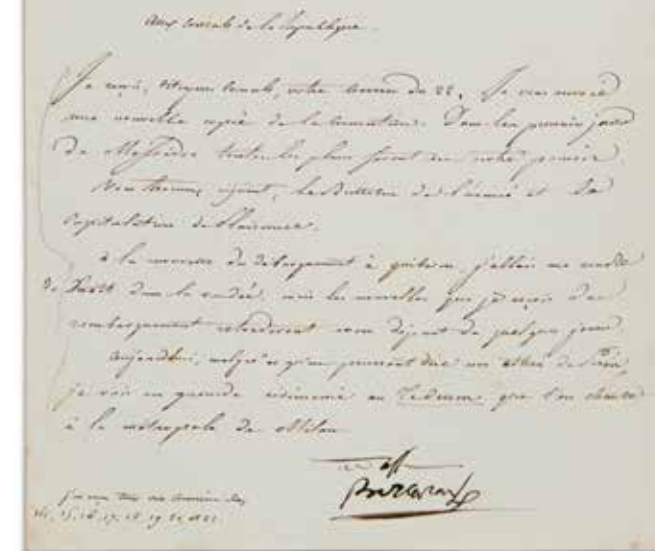 Aux Consuls de la République.
Je reçois, citoyens Consuls, votre courrier du 22. Je vous envoie
une nouvelle copie de la convention. Dans les premiers jours
de Messidor toutes les places seront en notre pouvoir.
Vous trouverez ci joint, le Bulletin de l'armée et la
Capitulation de Plaisance.
à la nouvelle du débarquement à quiberon, j'allais me rendre
de suite dans la vendée, mais les nouvelles que je reçois du
rembarquement retarderont mon départ de quelques jours.
Aujourd'hui, malgré ce qu'en pourront dire nos athées de Paris,
je vais en grande cérémonie au Te Deum que l'on chante
à la métropole de Milan.
j'ai reçu tous vos courriers des
14, 15, 16, 17, 18, 19